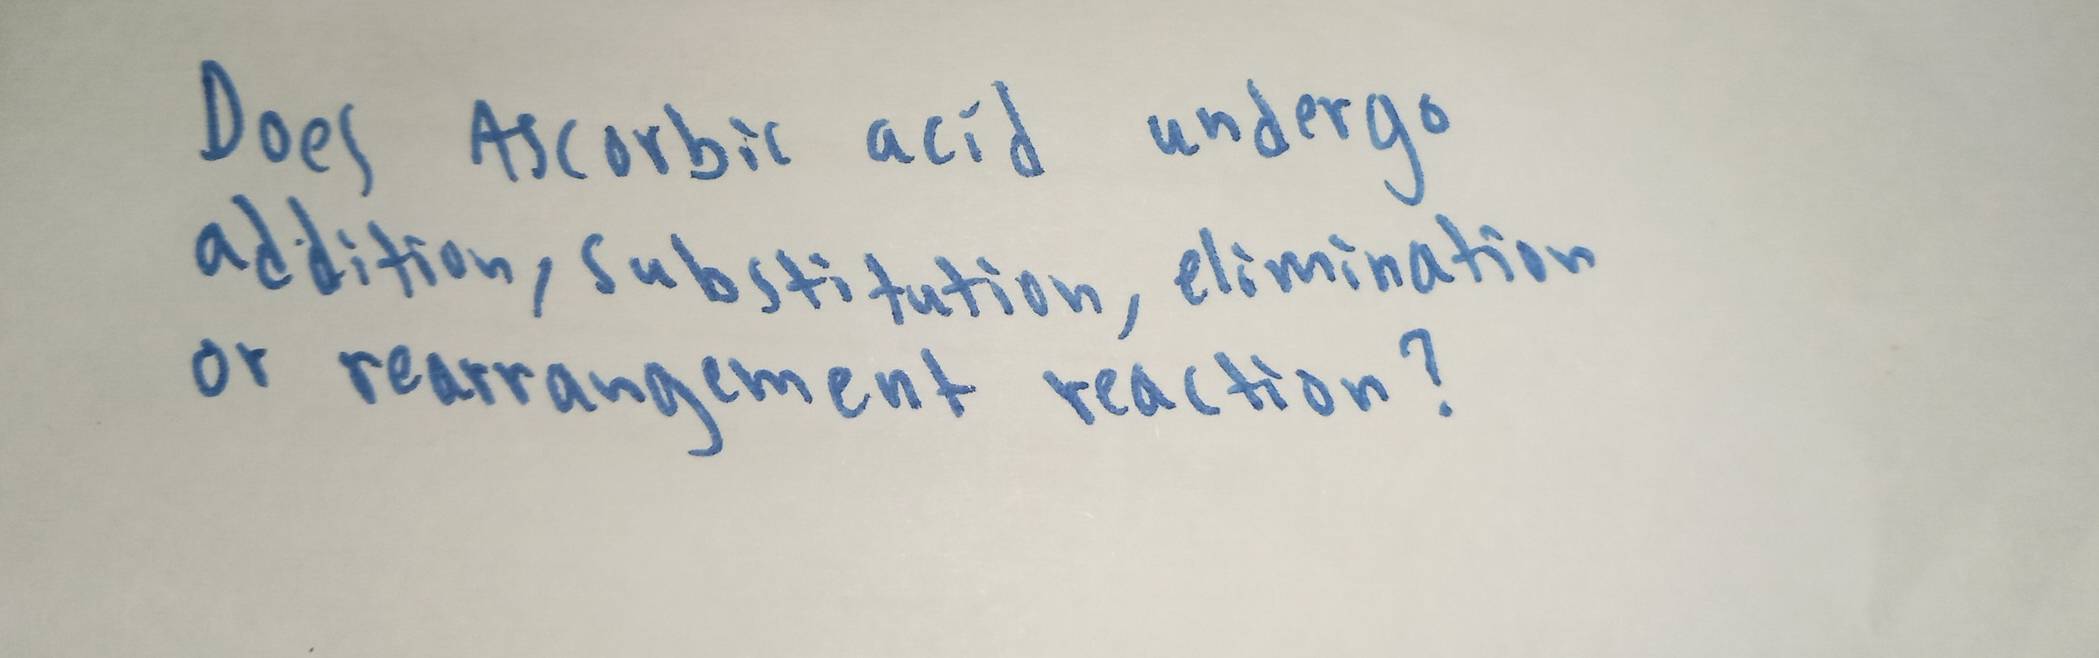 Does Ascorbic acid undergo
addition, substitution, elimination
or rearrangement reaction?